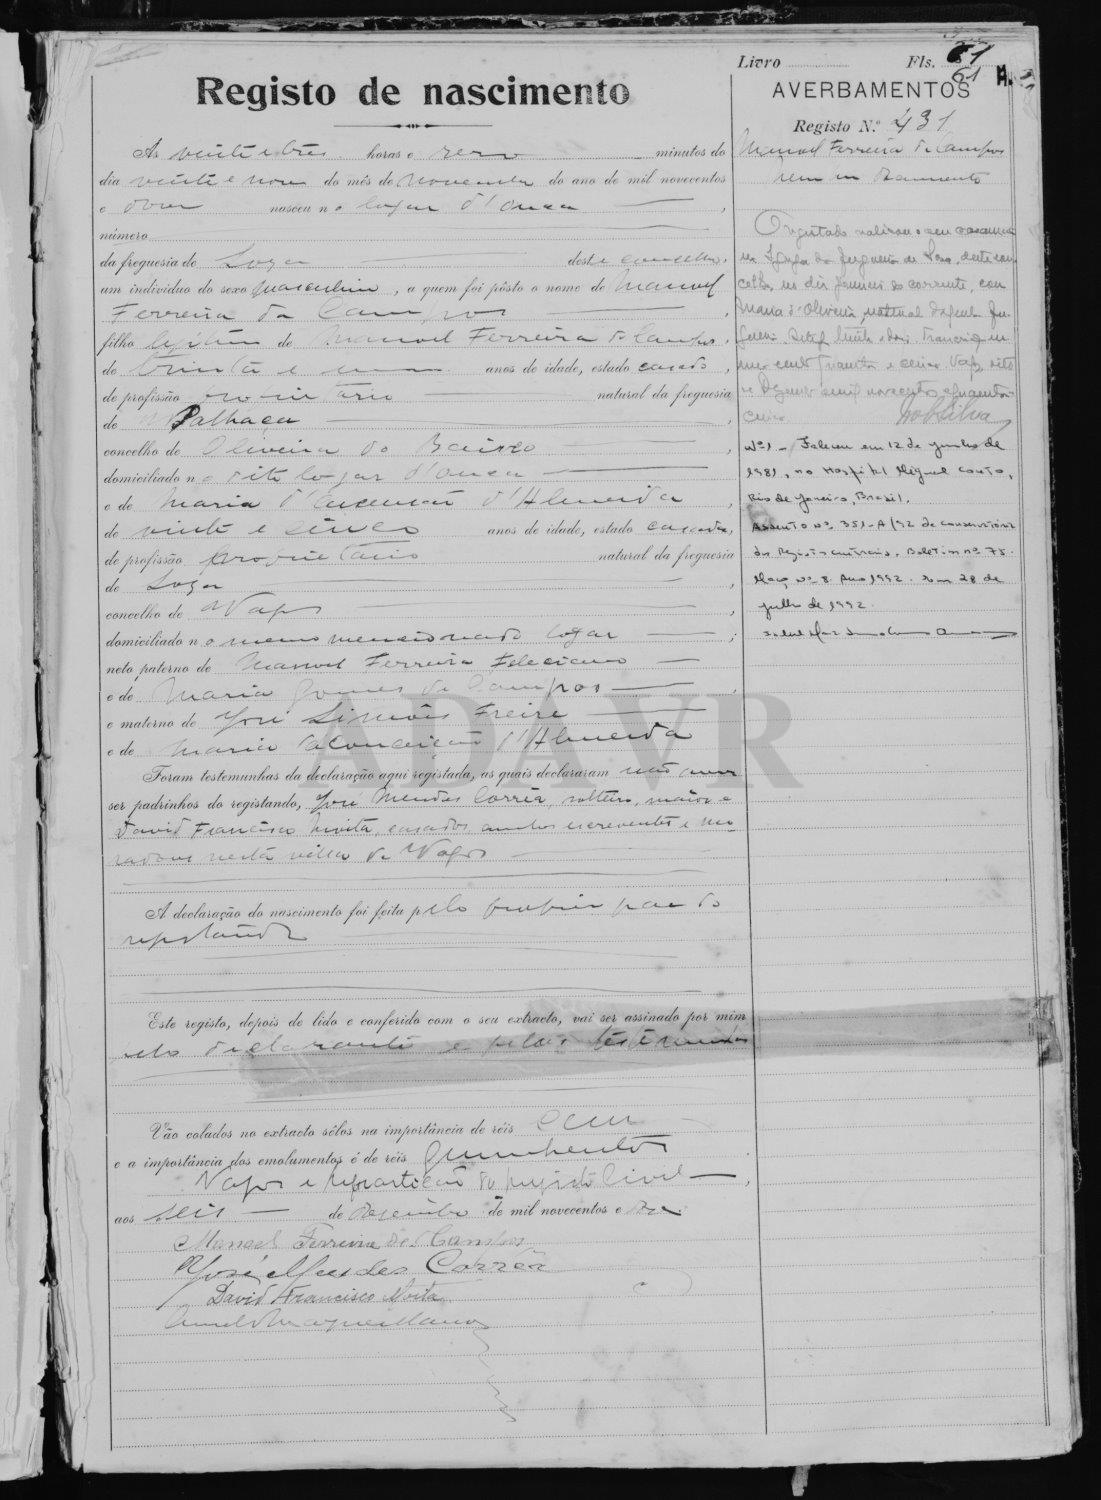 Livro Fls. 61
61
AVERBAMENTOS
Registo N.º 431
Manoel Ferreira de Campos
Registo de nascimento
Ás vinte e três horas e zero minutos do
dia vinte e nove do mês de Novembro do ano de mil novecentos
e doze nasceu no lugar d'ouca
número
da freguesia de Soza deste concelho,
um individuo do sexo masculino, a quem foi pôsto o nome de Manoel
Ferreira de Campos
filho legítimo de Manoel Ferreira de Campos,
de trinta e um anos de idade, estado casado,
de profissão proprietario natural da freguesia
de Palhaça
concelho de Oliveira do Bairro,
domiciliado no dito lugar d'ouca
e de Maria d'Ascenção d'Almeida
de vinte e cinco anos de idade, estado casada,
de profissão proprietaria natural da freguesia
de Soza,
concelho de Vagos,
domiciliado no mesmo mencionado logar;
neto paterno de Manoel Ferreira Feleciano
e de Maria Gomes de Campos,
e materno de José Simões Freire
e de Maria da Conceição d'Almeida
Foram testemunhas da declaração aqui registada, as quais declararam não
ser padrinhos do registando, José Mendes Corrêa, solteiro, maior e
David Francisco Moita, casado, ambos escreventes e mo-
radores nesta villa de Vagos
A declaração do nascimento foi feita pelo proprio pae do
registando
Este registo, depois de lido e conferido com o seu extracto, vai ser assinado por mim
pelo declarante e pelas testemunhas
Vão colados no extracto sêlos na importância de réis cem
e a importância dos emolumentos é de réis quinhentos
Vagos e repartição do registo civil,
aos seis de Dezembro de mil novecentos e doze
Manoel Ferreira de Campos
José Mendes Corrêa
David Francisco Moita
O registado realizou o seu casamento
na Igreja da freguesia de Soza, deste con-
celho, no dia primeiro do corrente, com
Maria d'Oliveira, natural daquela fre-
guesia
Nº1 - Faleceu em 12 de junho de
1981, no Hospital Miguel Couto,
Rio de Janeiro, Brasil.
Assento nº 351-A/92 da conservatória
dos Registos centrais. Boletim nº 75.
Maço nº 8. Ano 1992. Em 28 de
julho de 1992.
ADAVR